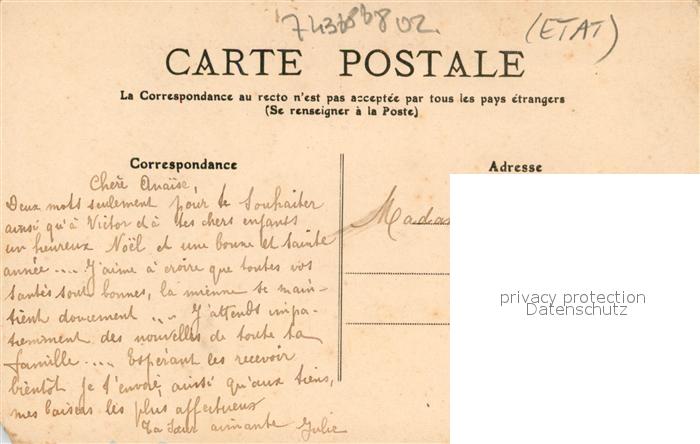 743838802.
(ETAT)
CARTE POSTALE
La Correspondance au recto n'est pas acceptée par tous les pays étrangers
(Se renseigner à la Poste)
Correspondance
Adresse
Chère Anaïse,
Deux mots seulement pour te souhaiter
ainsi qu'à Victor et à tes chers enfants
un heureux Noël et une bonne et sainte
année .... J'aime à croire que toutes vos
santés sont bonnes, la mienne se main-
tient doucement ... J'attends impa-
tiemment des nouvelles de toute ta
famille .... Espérant les recevoir
bientôt je t'envoie, ainsi qu'aux tiens,
mes baisers les plus affectueux
Ta sœur aimante Julie
Mada
privacy protection
Datenschutz